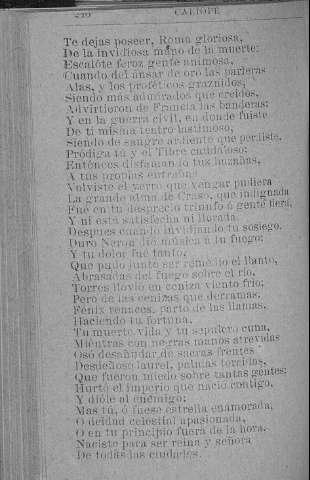 CALIOPE
Te dejas poseer, Roma gloriosa,
De la invidiosa mano de la muerte:
Escalóte feroz gente animosa,
Cuando del ánsar de oro las parleras
Alas, y los proféticos graznidos,
Siendo más admirados que creidos,
Advirtieron de Francia las banderas;
Y en la guerra civil, en donde fuiste
De ti misma teatro lastimoso;
Siendo de sangre ardiente que perdiste,
Pródiga tú y el Tibre caudaloso;
Entónces disfamando tus hazañas,
A tus propias entrañas
Volviste el yerro que vengar pudiera
La grande alma de Craso, que indignada
Fué en tu desprecio triunfo á gente fiera,
Y ni está satisfecha ni llorada.
Despues cuando invidiando tu sosiego,
Duro Neron dió música á tu fuego;
Y tu dolor fué tanto,
Que pudo junto ser remedio el llanto,
Abrasadas del fuego sobre el rio,
Torres llovió en ceniza viento frio;
Pero de las cenizas que derramas,
Fénix renaces, parto de las llamas,
Haciendo tu fortuna,
Tu muerte vida y tu sepulcro cuna,
Miéntras con negras manos atrevidas
Osó desañudar de sacras frentes
Desdeñoso laurel, palmas torcidas,
Que fueron miedo sobre tantas gentes;
Hurtó el imperio que nació contigo,
Y dióle al enemigo;
Mas tú, ó fuese estrella enamorada,
O deidad celestial apasionada,
O en tu principio fuera de la hora,
Naciste para ser reina y señora
De todas las ciudades.